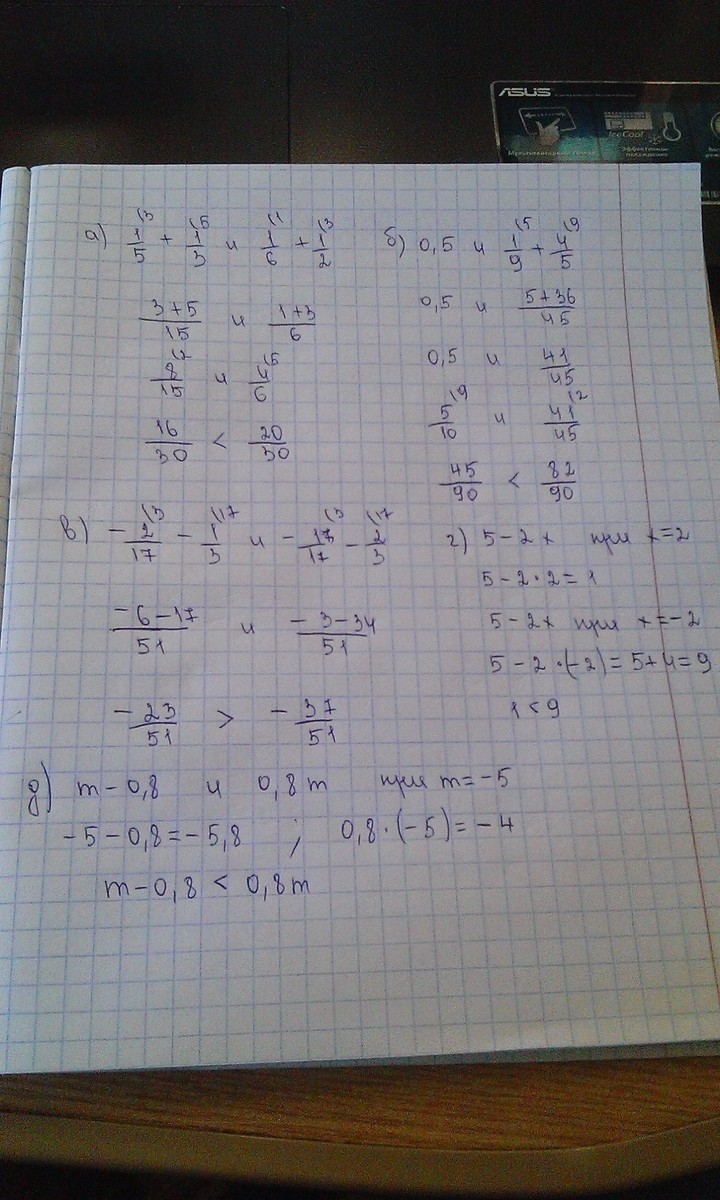 ASUS
IceCool
а) 1/5 (3 + 1/3 (5 и 1/6 (1 + 1/2 (3
3+5/15 и 1+3/6
8/15 (2 и 4/6 (5
16/30 < 20/30
б) 0,5 и 1/9 (5 + 4/5 (9
0,5 и 5+36/45
0,5 и 41/45
5/10 (9 и 41/45 (2
45/90 < 82/90
в) - 2/17 (3 - 1/3 (17 и - /17 (3 - 2/3 (17
-6-17/51 и -3-34/51
- 23/51 > - 37/51
г) 5-2x при x=2
5-2·2=1
5-2x при x=-2
5-2·(-2)=5+4=9
1<9
д) m-0,8 и 0,8m при m=-5
-5-0,8=-5,8 ; 0,8·(-5)=-4
m-0,8 < 0,8m